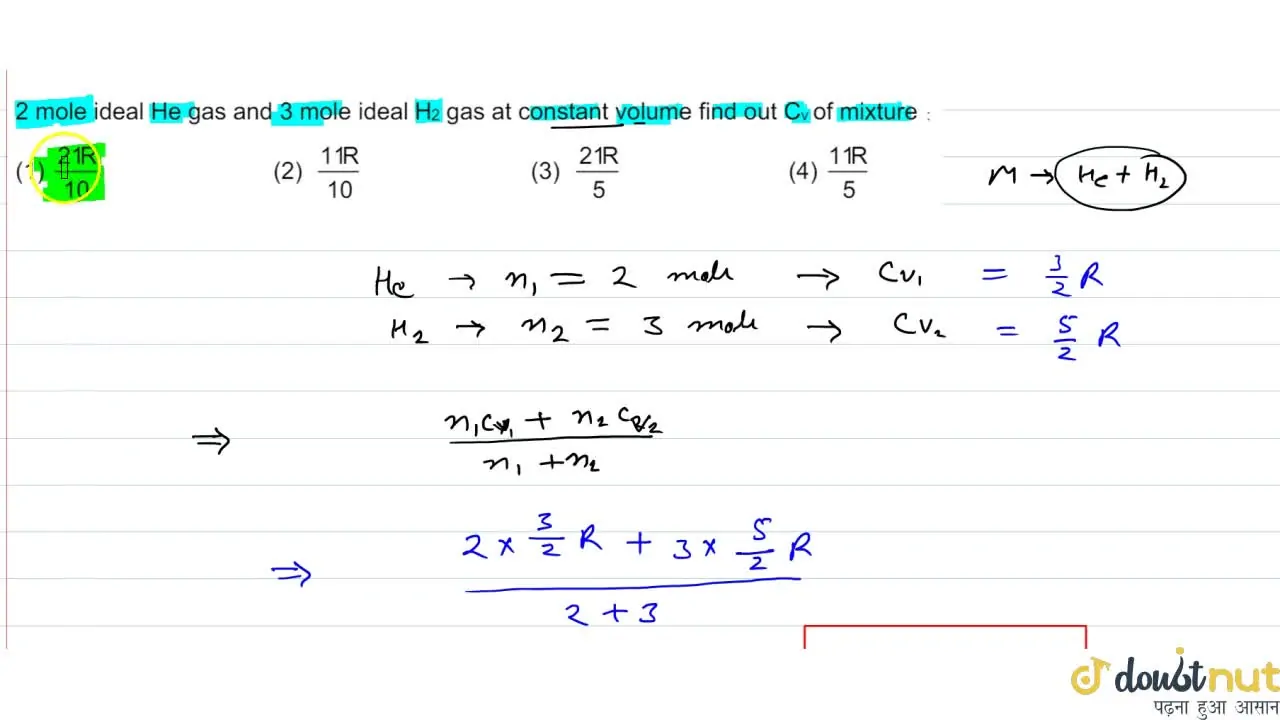 2 mole ideal He gas and 3 mole ideal H₂ gas at constant volume find out Cᵥ of mixture :
(1) 21R/10 (2) 11R/10 (3) 21R/5 (4) 11R/5
M → He + H₂
He → n₁ = 2 mole → Cv₁ = 3/2 R
H₂ → n₂ = 3 mole → Cv₂ = 5/2 R
⇒ n₁Cv₁ + n₂Cv₂ / n₁ + n₂
⇒ 2 × 3/2 R + 3 × 5/2 R / 2 + 3
doubtnut
पढ़ना हुआ आसान